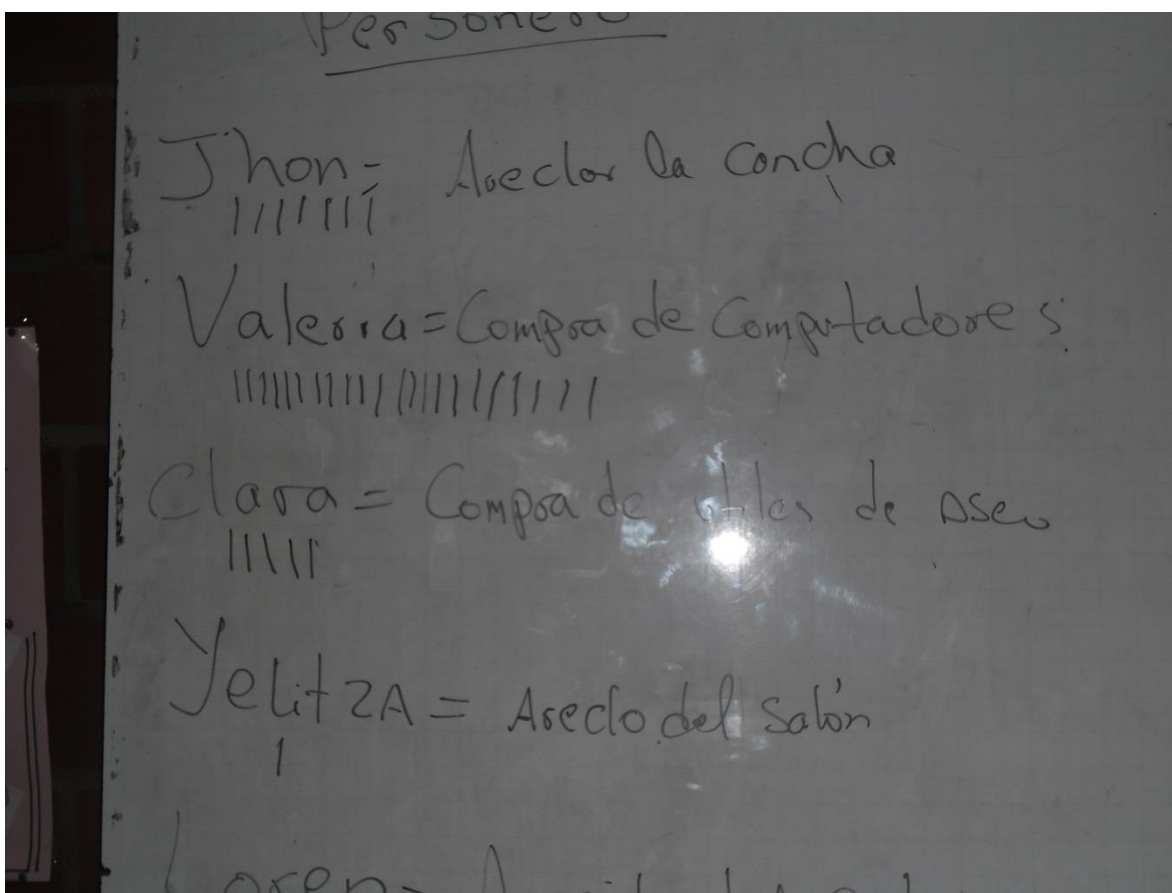 Personero
Jhon= Areclar la concha
Valeria = Compra de Computadores
Clara = Compra de utiles de Aseo
YelitzA = Areclo del salón